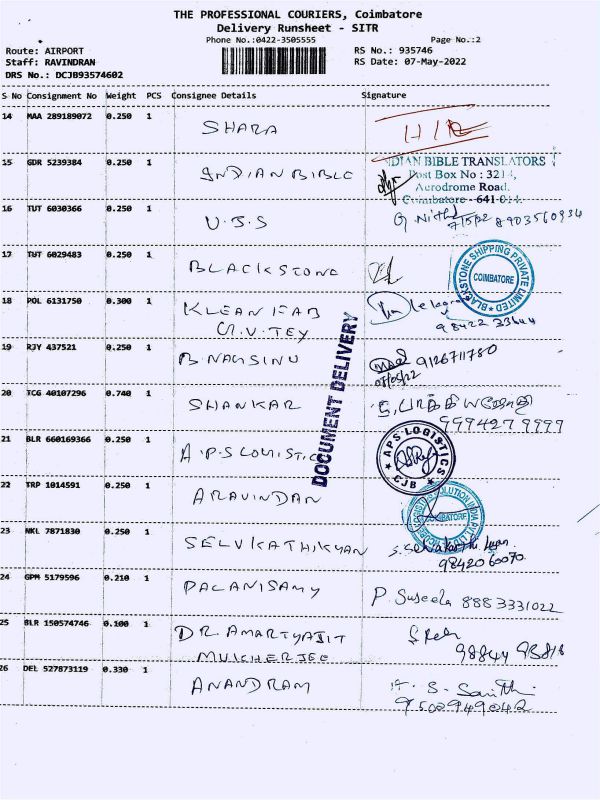 THE PROFESSIONAL COURIERS, Coimbatore
Delivery Runsheet - SITR
Phone No.:0422-3505555 Page No.:2
Route: AIRPORT RS No.: 935746
Staff: RAVINDRAN RS Date: 07-May-2022
DRS No.: DCJB93574602
S No Consignment No Weight PCS Consignee Details Signature
14 MAA 289189072 0.250 1 SHARA
15 GDR 5239384 0.250 1 INDIAN BIBLE
INDIAN BIBLE TRANSLATORS
Post Box No : 3214,
Aerodrome Road,
Coimbatore - 641 014.
16 TUT 6030366 0.250 1 U.B.S
7/5/22 8903560934
17 TUT 6029483 0.250 1 BLACKSTONE
BLACKSTONE SHIPPING PRIVATE LIMITED
COIMBATORE
18 POL 6131750 0.300 1 KLEAN FAB
98422 33644
DOCUMENT DELIVERY
19 RJY 437521 0.250 1
9126711780
07/05/22
20 TCG 40107296 0.740 1 SHANKAR
9994279999
21 BLR 660169366 0.250 1 A.P.S LOGISTIC
APS LOGISTICS
CJB
22 TRP 1014591 0.250 1 ARAVINDAN
COIMBATORE
23 NKL 7871830 0.250 1 SELVKATHIKYAN
9842060070
24 GPM 5179596 0.210 1 PALANISAMY P. Suseela 8883331022
25 BLR 150574746 0.100 1 DR. AMARTYAJIT
MUKHERJEE
26 DEL 527873119 0.330 1 ANANDRAM
9500949042